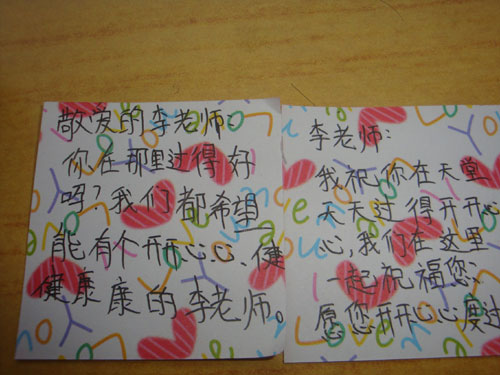 敬爱的李老师:
你在那里过得好
吗?我们都希望
能有个开开心心、健
健康康的李老师。
李老师:
我祝你在天堂
天天过得开开心
心,我们在这里
一起祝福您:
愿您开开心心度过